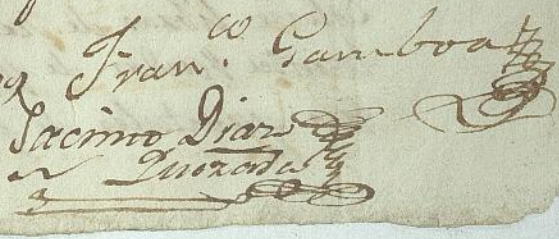 Fran.co Gamboa
Jacinto Diaz
Quozada